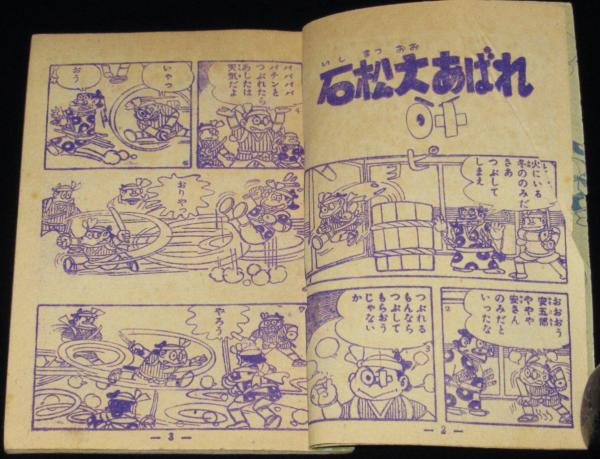 いしまつおお
石松大あばれ
火にいる
冬ののみだ
さあ
つぶして
しまえ
おおおう
安五郎
ややや
安さん
のみだと
いったな
つぶれる
もんなら
つぶして
もらおう
じゃない
か
— 2 —
パパパパ
パチンと
つぶれたら
あしたは
天気だよ
いやっ
おう
おりゃ
やろう
— 3 —